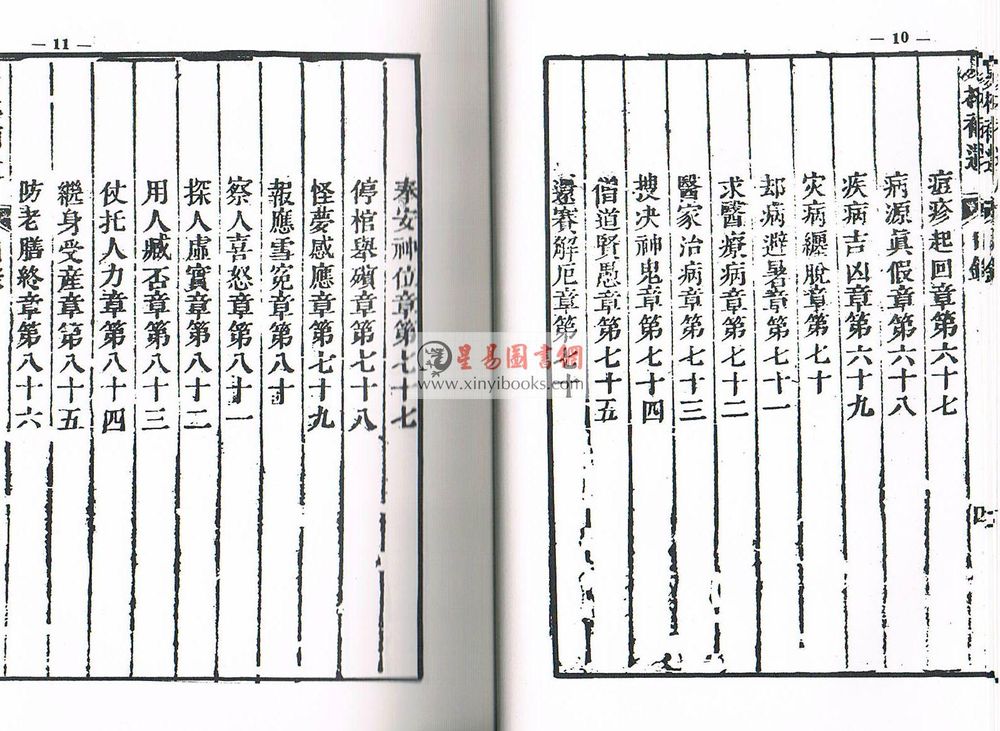 — 10 —
痘疹起回章第六十七
病源眞假章第六十八
疾病吉凶章第六十九
灾病纏脫章第七十
却病避暑章第七十一
求醫療病章第七十二
醫家治病章第七十三
搜决神鬼章第七十四
僧道賢愚章第七十五
還賽解厄章第七十
— 11 —
奉安神位章第七十七
停棺舉殯章第七十八
怪夢感應章第七十九
報應雪冤章第八十
察人喜怒章第八十一
探人虛實章第八十二
用人臧否章第八十三
仗托人力章第八十四
繼身受產章第八十五
防老膳終章第八十六
星易圖書網
www.xinyibooks.com